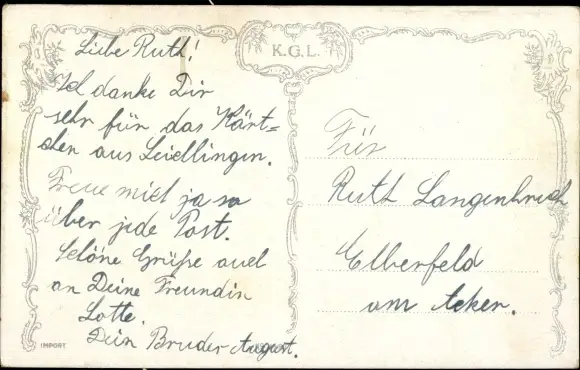 Liebe Ruth!
Ich danke Dir
sehr für das Kärt=
chen aus Leichlingen.
Freue mich ja so
über jede Post.
Schöne Grüße auch
an Deine Freundin
Lotte.
Dein Bruder August.
K.G.L.
Für
Ruth Langenbruch
Elberfeld
am Acker.
IMPORT